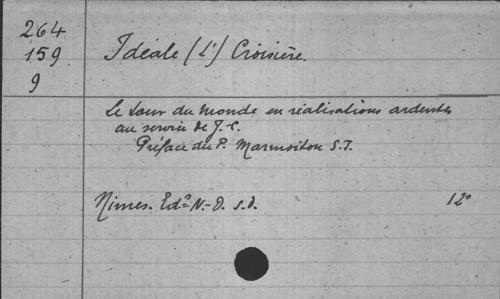 264
159
9
Idéale (L') Croisière.
Le tour du monde en réalisations ardentes
au service de J.-C.
Préface du P. Marmoiton S.J.
Nimes. Edo N.-D. s.d. 12°